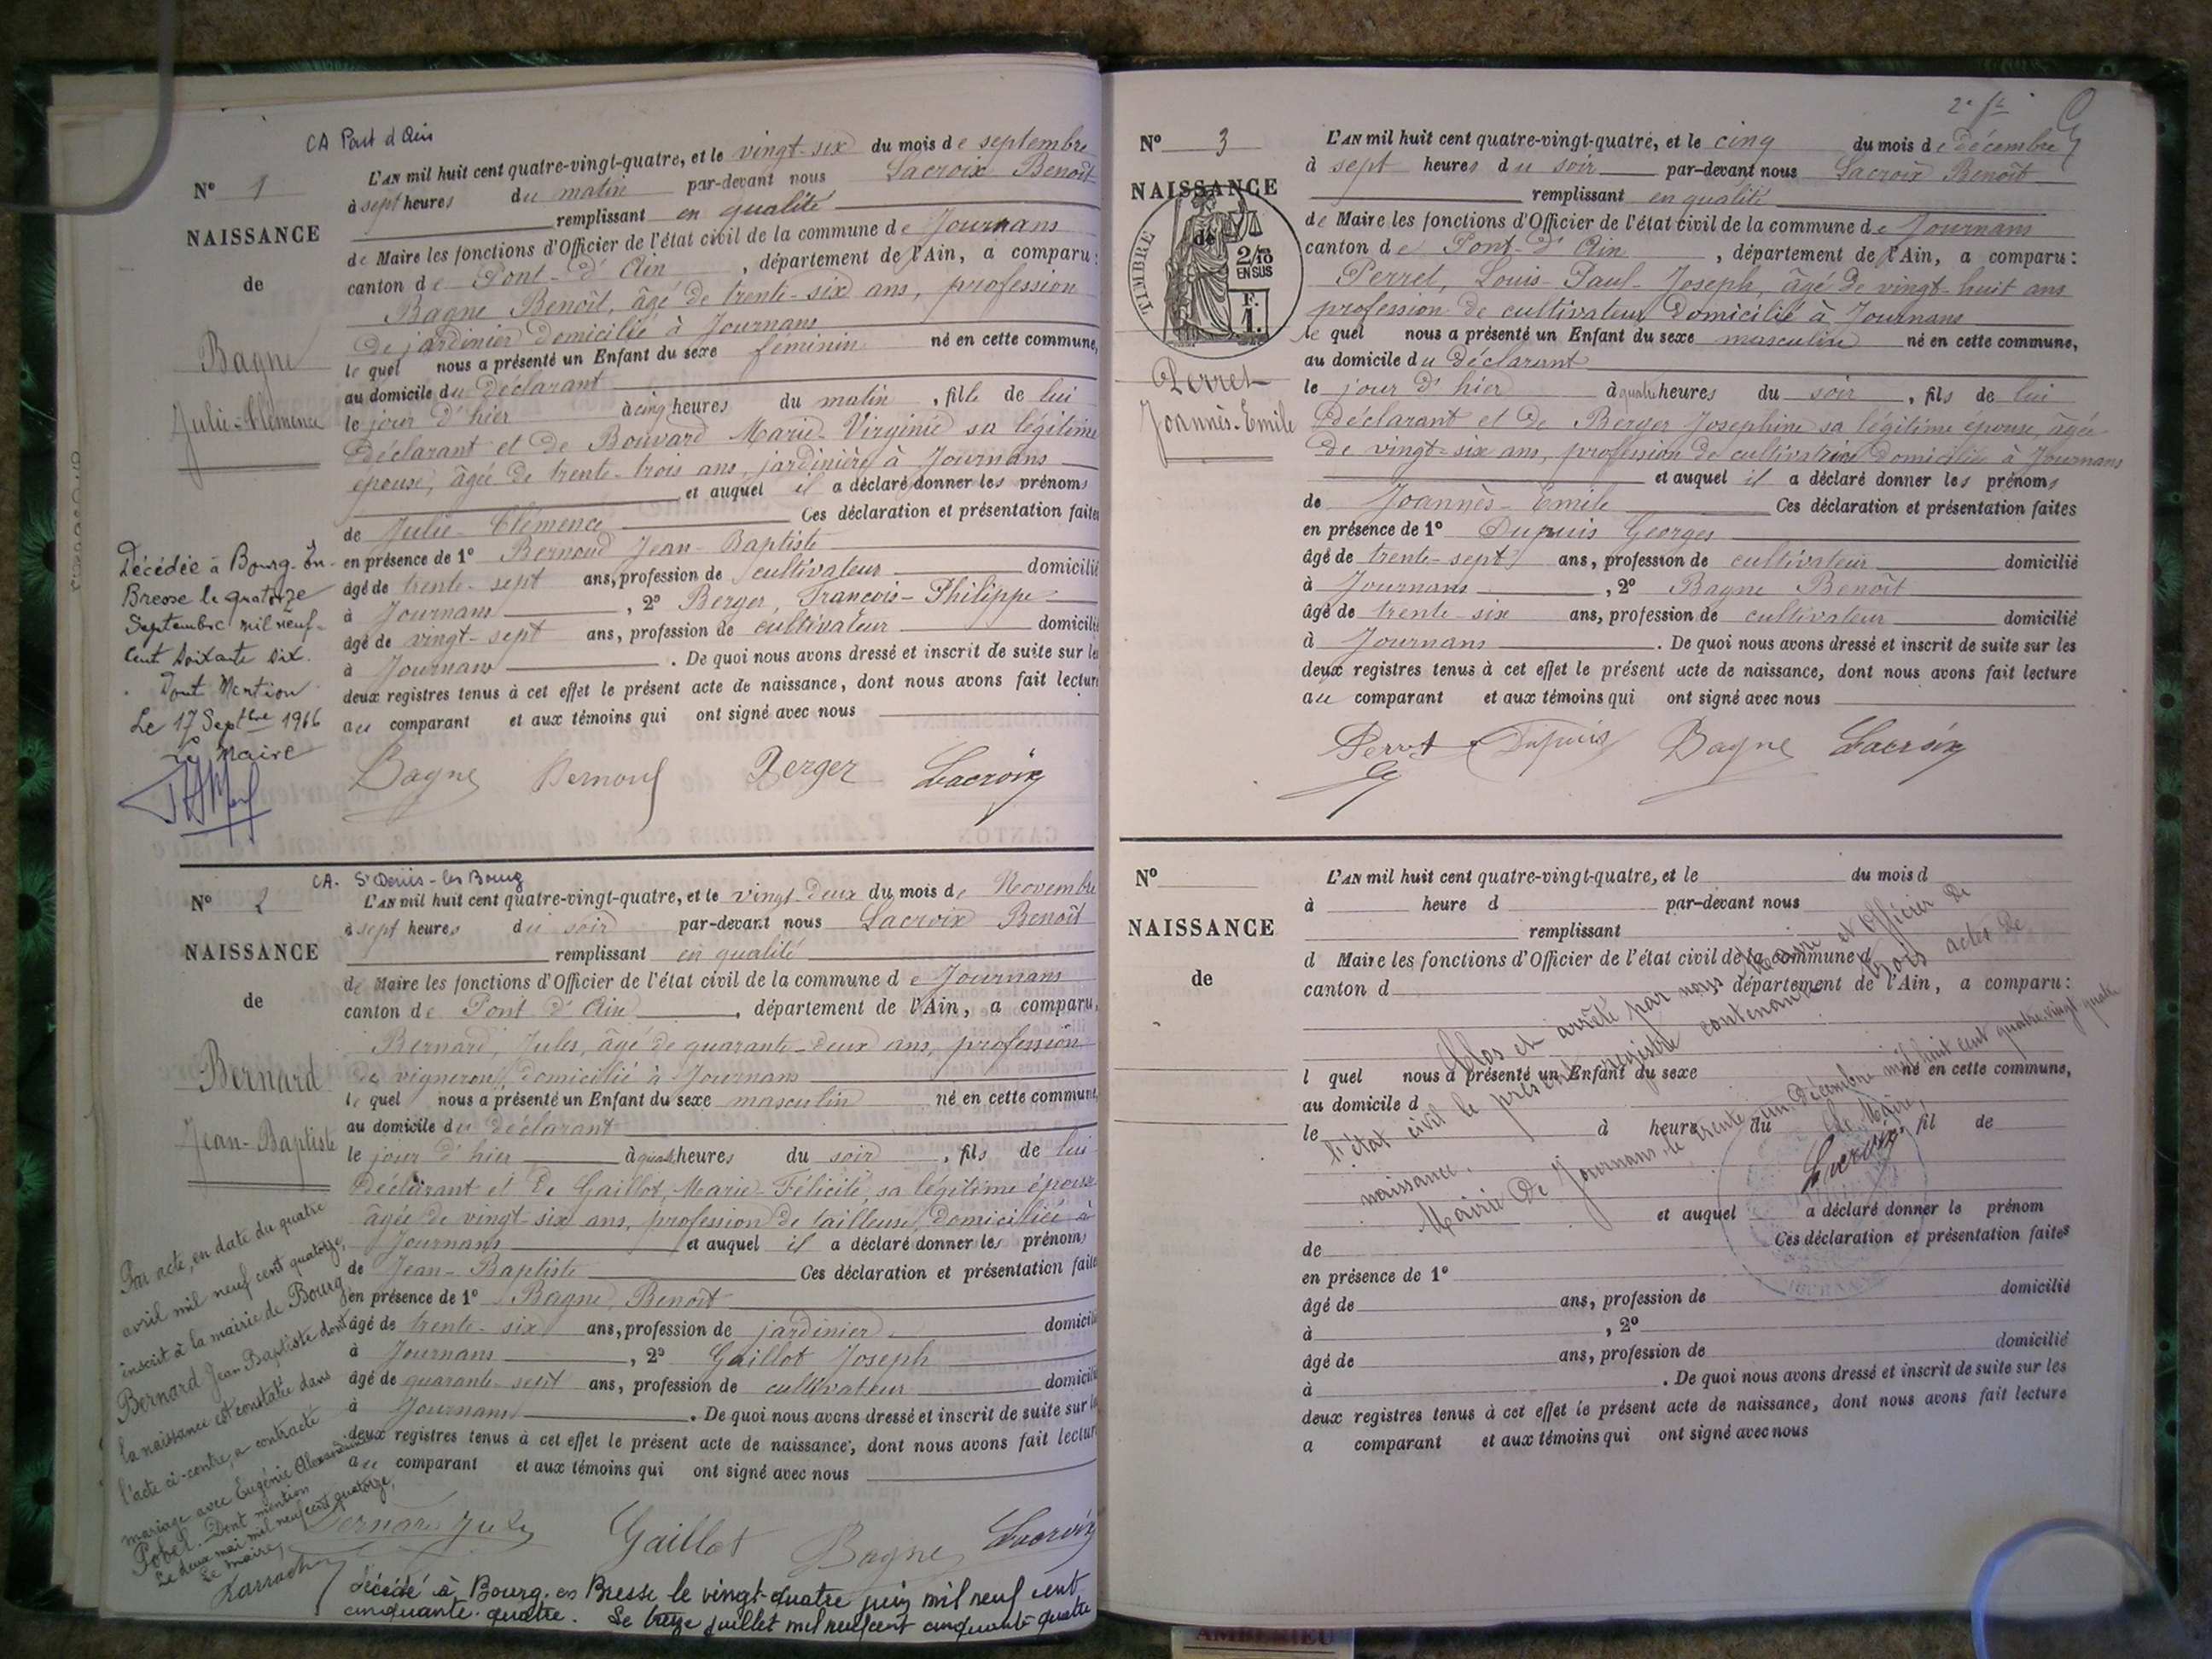 CA Pont d'Ain
N° 1
NAISSANCE
de
Bagne
Julie-Clémence
L'AN mil huit cent quatre-vingt-quatre, et le vingt-six du mois de septembre
à sept heures du matin par-devant nous Lacroix Benoît
remplissant en qualité
de Maire les fonctions d'Officier de l'état civil de la commune de Journans
canton de Pont-d'Ain, département de l'Ain, a comparu:
Bagne Benoît, âgé de trente-six ans, profession
de jardinier domicilié à Journans
le quel nous a présenté un Enfant du sexe féminin né en cette commune,
au domicile du déclarant
le jour d'hier à cinq heures du matin, fille de lui
déclarant et de Bouvard Marie-Virginie sa légitime
épouse, âgée de trente-trois ans, jardinière à Journans
et auquel il a déclaré donner les prénoms
de Julie-Clémence Ces déclaration et présentation faites
en présence de 1° Bernoud Jean-Baptiste
âgé de trente-sept ans, profession de cultivateur domicilié
à Journans, 2° Berger, François-Philippe
âgé de vingt-sept ans, profession de cultivateur domicilié
à Journans. De quoi nous avons dressé et inscrit de suite sur les
deux registres tenus à cet effet le présent acte de naissance, dont nous avons fait lecture
au comparant et aux témoins qui ont signé avec nous
Bagne Bernoud Berger Lacroix
Décédée à Bourg-en-
Bresse le quatorze
Septembre mil neuf-
cent soixante six.
Dont Mention
Le 17 Septbre 1966
Le Maire
CA. St Denis-les Bourg
N° 2
NAISSANCE
de
Bernard
Jean-Baptiste
L'AN mil huit cent quatre-vingt-quatre, et le vingt-deux du mois de Novembre
à sept heures du soir par-devant nous Lacroix Benoît
remplissant en qualité
de Maire les fonctions d'Officier de l'état civil de la commune de Journans
canton de Pont d'Ain, département de l'Ain, a comparu,
Bernard, Jules, âgé de quarante-deux ans, profession
de vigneron, domicilié à Journans
le quel nous a présenté un Enfant du sexe masculin né en cette commune,
au domicile du déclarant
le jour d'hier à quatre heures du soir, fils de lui
déclarant et de Gaillot, Marie-Félicité, sa légitime épouse
âgée de vingt-six ans, profession de tailleuse, domiciliée à
Journans et auquel il a déclaré donner les prénoms
de Jean-Baptiste Ces déclaration et présentation faites
en présence de 1° Bagne, Benoît
âgé de trente-six ans, profession de jardinier domicilié
à Journans, 2° Gaillot Joseph
âgé de quarante-sept ans, profession de cultivateur domicilié
à Journans. De quoi nous avons dressé et inscrit de suite sur les
deux registres tenus à cet effet le présent acte de naissance, dont nous avons fait lecture
au comparant et aux témoins qui ont signé avec nous
Bernard Jules Gaillot Bagne Lacroix
Par acte, en date du quatre
avril mil neuf cent quatorze,
inscrit à la mairie de Bourg
Bernard Jean Baptiste dont
la naissance est constatée dans
l'acte ci-contre, a contracté
mariage avec Eugénie Alexandrine
Pobel. Dont mention
Le deux mai mil neuf cent quatorze,
Le maire,
décédé à Bourg en Bresse le vingt-quatre juin mil neuf cent
cinquante-quatre. Le treize juillet mil neuf cent cinquante-quatre
2e ft
N° 3
NAISSANCE
de
TIMBRE
2/10
EN SUS
F.
1.
Perret
Joannès-Emile
L'AN mil huit cent quatre-vingt-quatre, et le cinq du mois de décembre
à sept heures du soir par-devant nous Lacroix Benoît
remplissant en qualité
de Maire les fonctions d'Officier de l'état civil de la commune de Journans
canton de Pont-d'Ain, département de l'Ain, a comparu:
Perret, Louis-Paul-Joseph, âgé de vingt-huit ans
profession de cultivateur domicilié à Journans
le quel nous a présenté un Enfant du sexe masculin né en cette commune,
au domicile du déclarant
le jour d'hier à quatre heures du soir, fils de lui
déclarant et de Berger Josephine sa légitime épouse, âgée
de vingt-six ans, profession de cultivatrice domiciliée à Journans
et auquel il a déclaré donner les prénoms
de Joannès-Emile Ces déclaration et présentation faites
en présence de 1° Dupuis Georges
âgé de trente-sept ans, profession de cultivateur domicilié
à Journans, 2° Bagne Benoît
âgé de trente-six ans, profession de cultivateur domicilié
à Journans. De quoi nous avons dressé et inscrit de suite sur les
deux registres tenus à cet effet le présent acte de naissance, dont nous avons fait lecture
au comparant et aux témoins qui ont signé avec nous
Perret Dupuis Bagne Lacroix
N°
NAISSANCE
de
L'AN mil huit cent quatre-vingt-quatre, et le du mois d
à heure d par-devant nous
remplissant
d Maire les fonctions d'Officier de l'état civil de la commune d
canton d département de l'Ain, a comparu:
l quel nous a présenté un Enfant du sexe né en cette commune,
au domicile d
le à heure du fil de
et auquel a déclaré donner le prénom
de Ces déclaration et présentation faites
en présence de 1°
âgé de ans, profession de domicilié
à , 2°
âgé de ans, profession de domicilié
à . De quoi nous avons dressé et inscrit de suite sur les
deux registres tenus à cet effet le présent acte de naissance, dont nous avons fait lecture
a comparant et aux témoins qui ont signé avec nous
Clos et arrêté par nous Maire et officier de
l'état civil le présent registre contenant trois actes de
naissance.
Mairie de Journans, le trente un Décembre mil huit cent quatre-vingt quatre
Le Maire,
Lacroix
AMBERIEU